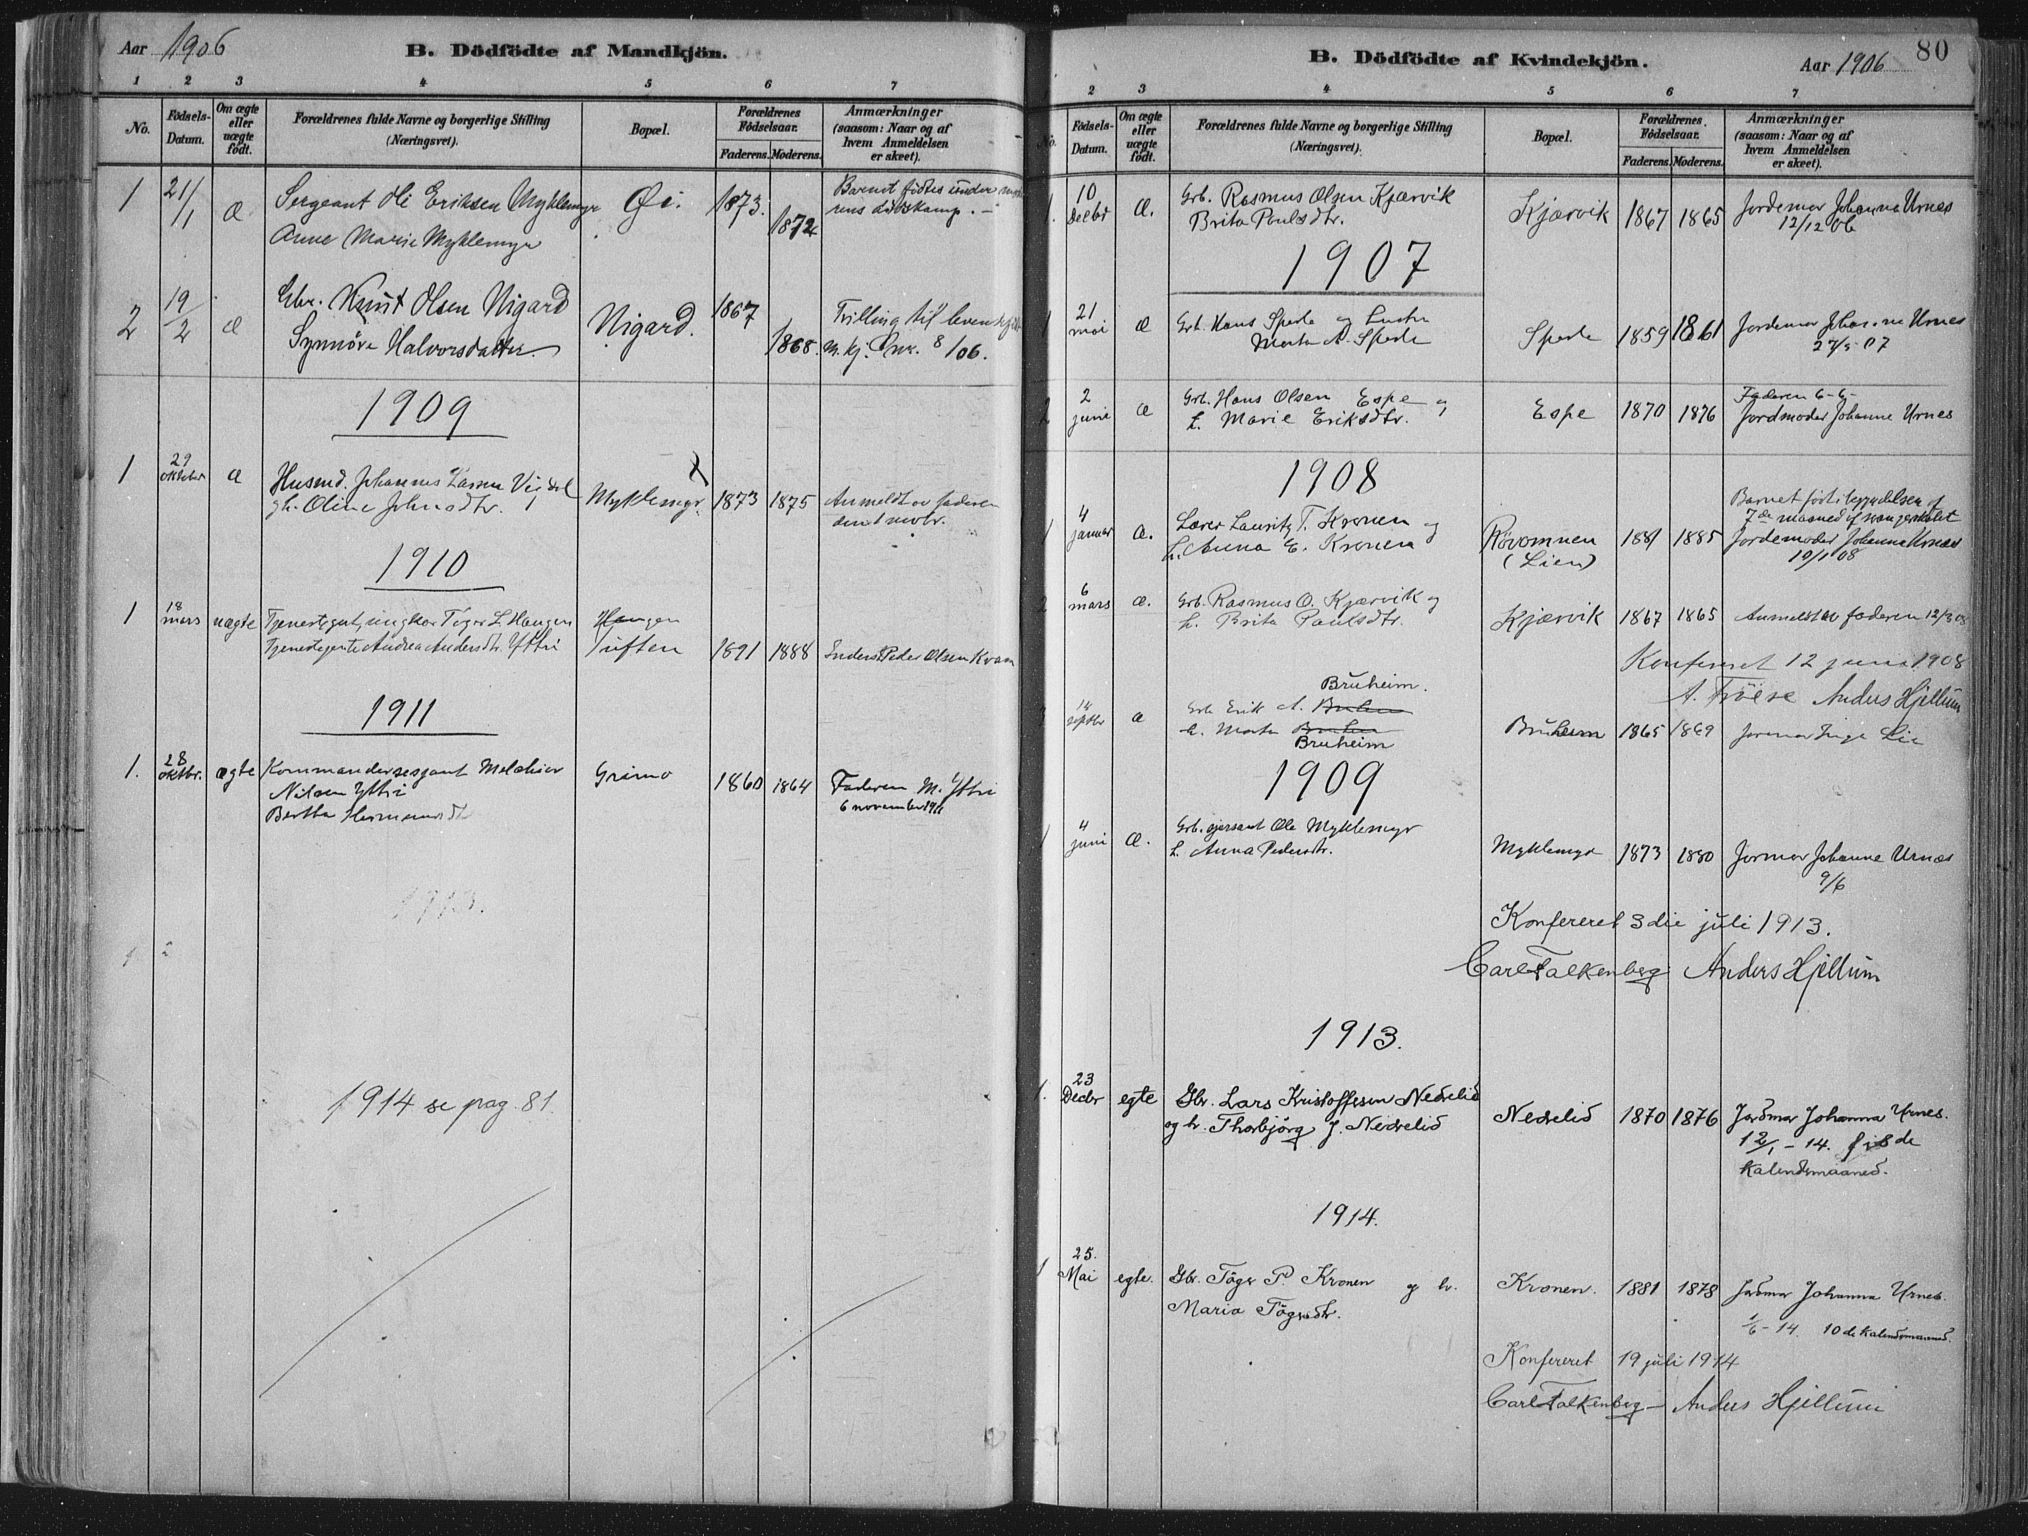 Aar 1906
B. Dödfödte af Mandkjön.
1 2 3 4 5 6 7
No.
Födsels-Datum.
Om ægte eller uægte födt.
Forældrenes fulde Navne og borgerlige Stilling
(Næringsvei).
Bopæl.
Forældrenes Födselsaar.
Faderens. Moderens.
Anmærkninger
(saasom: Naar og af
hvem Anmeldelsen
er skeet).
1 21/1 Æ Sergeant Ole Eriksen Myklemyr Øi. 1873. 1872 Barnet fødtes under mo-
rens dødskamp. –
Anne Marie Myklemyr
2 19/2 Æ Gbr. Knut Olsen Nigard Nigard. 1867 1868. Trilling til levende
Synnöve Halvorsdatter. m. kj. No. 8/06.
1909
1 29 oktober Æ Husmd. Johannes Larsen Myklemyr 1873 1875 Anmeldt av faderen
gh. Oline Johnsdtr. den 1 novbr.
1910
1 18 mars uægte Tjenestegut, ungkar Töger L. Haugen Haugen
Tjenestejente Andrea Andersdtr. Yttri Tuften 1891 1888 Peder Olsen Kvam
1911
1. 28 oktbr. ægte Kommandersergeant Melchior Grimo 1860 1864 Faderen M. Yttri
Nilsen Yttri 6 november 1911
Bertha
1913.
1914 se pag. 81.
80
B. Dödfödte af Kvindekjön.
Aar 1906
2 3 4 5 6 7
No.
Födsels-Datum.
Om ægte eller uægte födt.
Forældrenes fulde Navne og borgerlige Stilling
(Næringsvei).
Bopæl.
Forældrenes Födselsaar.
Faderens. Moderens.
Anmærkninger
(saasom: Naar og af
hvem Anmeldelsen
er skeet).
1. 10 Decbr Æ. Grb. Rasmus Olsen Kjærvik Kjærvik 1867 1865 Jordemor Johanna Urnes
Brita Paulsdtr. 12/12 06
1907
1 21 mai Æ Grb. Hans Sperle og Hustru Sperle 1859 1861 Jordemor Johanne Urnes
Marta A. Sperle 27/5 07
2 2 juni Æ Grb. Hans Olsen Espe og Espe 1870 1876 Faderen 6-6-
h. Marie Eriksdtr. Jordmoder Johanne Urnes
1908
1 4 januar Æ. Lærer Lauritz T. Kronen og Rövomnen 1881 1885 Barnet født i begyndelsen af
h. Anna E. Kronen (Lien) 7de maaned af svangerskabet
Jordemoder Johanna Urnes
10/1 08
2 6 mars Æ. Grb. Rasmus O. Kjærvik og Kjærvik 1867 1865 Anmeldt av faderen 12/3 08
h. Brita Paulsdtr.
Konfereret 12 juni 1908
Anders Hjellum
Bruheim.
14 septbr Æ Grb. Erik A. Bruheim 1865 1869 Jormor Inga Lie
h. Marta
Bruheim
1909
1 4 juni Æ. Grb. sjersant Ole Myklemyr Myklemyr 1873 1880 Jormor Johanne Urnes
h. Anna Pedersdtr. 9/6
Konfereret 3die juli 1913.
Carl Falkenberg Anders Hjellum
1913.
1. 23 Decbr egte Gbr. Lars Kristoffersen Nedrelid Nedrelid 1870 1876 Jordmor Johanna Urnes.
og h. Thorbjörg J. Nedrelid 12/1 – 14. f i 8 de
Kalendermaaned.
1914.
1 25. Mai egte. Gbr. Töger P. Kronen og h. Kronen. 1881 1878 Jordmor Johanna Urnes.
Maria Tögersdtr. 1/6 – 14. 10 de Kalendermaaned.
Konfereret 19 juli 1914
Carl Falkenberg – Anders Hjellum